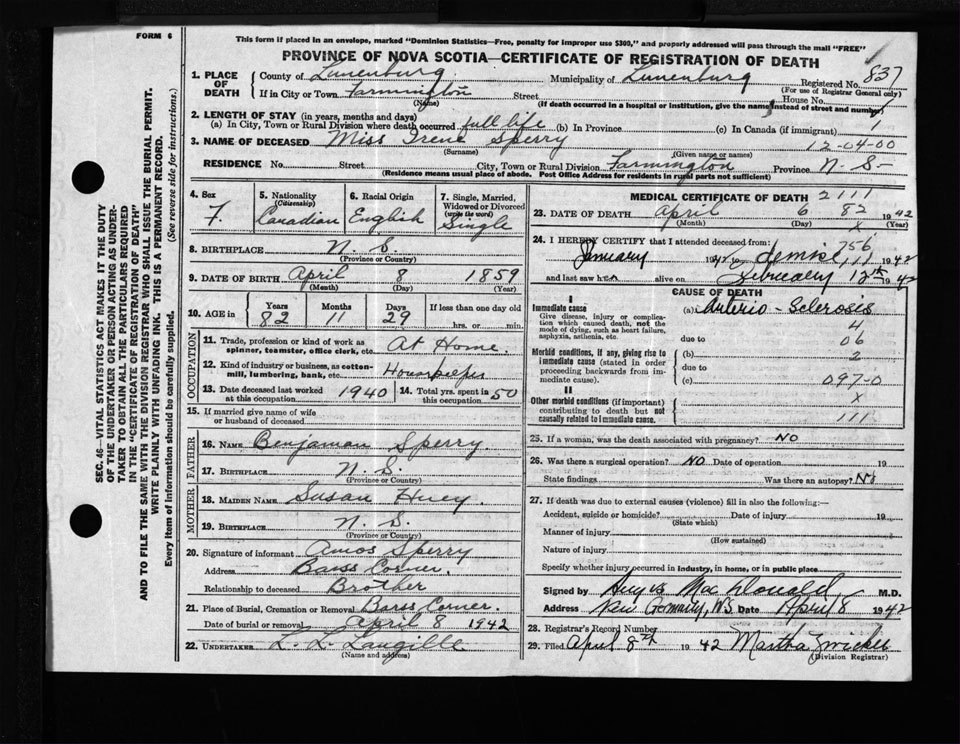 FORM 6
This form if placed in an envelope, marked "Dominion Statistics—Free, penalty for improper use $300," and properly addressed will pass through the mail "FREE"
PROVINCE OF NOVA SCOTIA—CERTIFICATE OF REGISTRATION OF DEATH
1. PLACE OF DEATH
County of Lunenburg Municipality of Lunenburg Registered No. 837
(For use of Registrar General only)
If in City or Town Farmington Street House No.
(Name) (If death occurred in a hospital or institution, give the name instead of street and number)
2. LENGTH OF STAY (in years, months and days)
(a) In City, Town or Rural Division where death occurred full life (b) In Province (c) In Canada (if immigrant) 1
3. NAME OF DECEASED Miss Irene Sperry 12-04-00
(Surname) (Given name or names)
RESIDENCE No. Street City, Town or Rural Division Farmington Province N. S.
(Residence means usual place of abode. Post Office Address for residents in rural parts not sufficient)
4. Sex F.
5. Nationality (Citizenship) Canadian
6. Racial Origin English
7. Single, Married, Widowed or Divorced (write the word) Single
8. BIRTHPLACE N. S.
(Province or Country)
9. DATE OF BIRTH April 8 1859
(Month) (Day) (Year)
10. AGE in Years 82 Months 11 Days 29 If less than one day old hrs. or min.
OCCUPATION
11. Trade, profession or kind of work as spinner, teamster, office clerk, etc. At Home.
12. Kind of industry or business, as cotton-mill, lumbering, bank, etc. Housekeeper
13. Date deceased last worked at this occupation 1940
14. Total yrs. spent in this occupation 50
15. If married give name of wife or husband of deceased
FATHER
16. NAME Benjaman Sperry
17. BIRTHPLACE N. S.
(Province or Country)
MOTHER
18. MAIDEN NAME Susan Huey.
19. BIRTHPLACE N. S.
(Province or Country)
20. Signature of informant Amos Sperry
Address Barss Corner.
Relationship to deceased Brother
21. Place of Burial, Cremation or Removal Barss Corner.
Date of burial or removal April 8 1942
22. UNDERTAKER L. L. Langille
(Name and address)
MEDICAL CERTIFICATE OF DEATH 2111
23. DATE OF DEATH April 6 82 1942
(Month) (Day) X (Year)
24. I HEREBY CERTIFY that I attended deceased from: 756
January 1942 to demise 111 1942
and last saw her alive on February 12th 1942
CAUSE OF DEATH
I
Immediate cause
Give disease, injury or complication which caused death, not the mode of dying, such as heart failure, asphyxia, asthenia, etc.
(a) Arterio-Sclerosis
4
due to 06
Morbid conditions, if any, giving rise to immediate cause (stated in order proceeding backwards from immediate cause).
(b) 2
due to
(c) 097-0
II
Other morbid conditions (if important) contributing to death but not causally related to immediate cause.
X
111
25. If a woman, was the death associated with pregnancy? No
26. Was there a surgical operation? No Date of operation 19
State findings Was there an autopsy? No
27. If death was due to external causes (violence) fill in also the following:—
Accident, suicide or homicide? Date of injury 19
(State which)
Manner of injury
(How sustained)
Nature of injury
Specify whether injury occurred in industry, in home, or in public place
Signed by Angus MacDonald, M.D.
Address New Germany, N.S. Date April 8 1942
28. Registrar's Record Number
29. Filed April 8th 1942 Martha Zwicker
(Division Registrar)
SEC. 46—VITAL STATISTICS ACT MAKES IT THE DUTY
OF THE UNDERTAKER OR PERSON ACTING AS UNDER-
TAKER TO OBTAIN ALL THE PARTICULARS REQUIRED
IN THE "CERTIFICATE OF REGISTRATION OF DEATH"
AND TO FILE THE SAME WITH THE DIVISION REGISTRAR WHO SHALL ISSUE THE BURIAL PERMIT.
WRITE PLAINLY WITH UNFADING INK. THIS IS A PERMANENT RECORD.
Every item of Information should be carefully supplied. (See reverse side for instructions.)